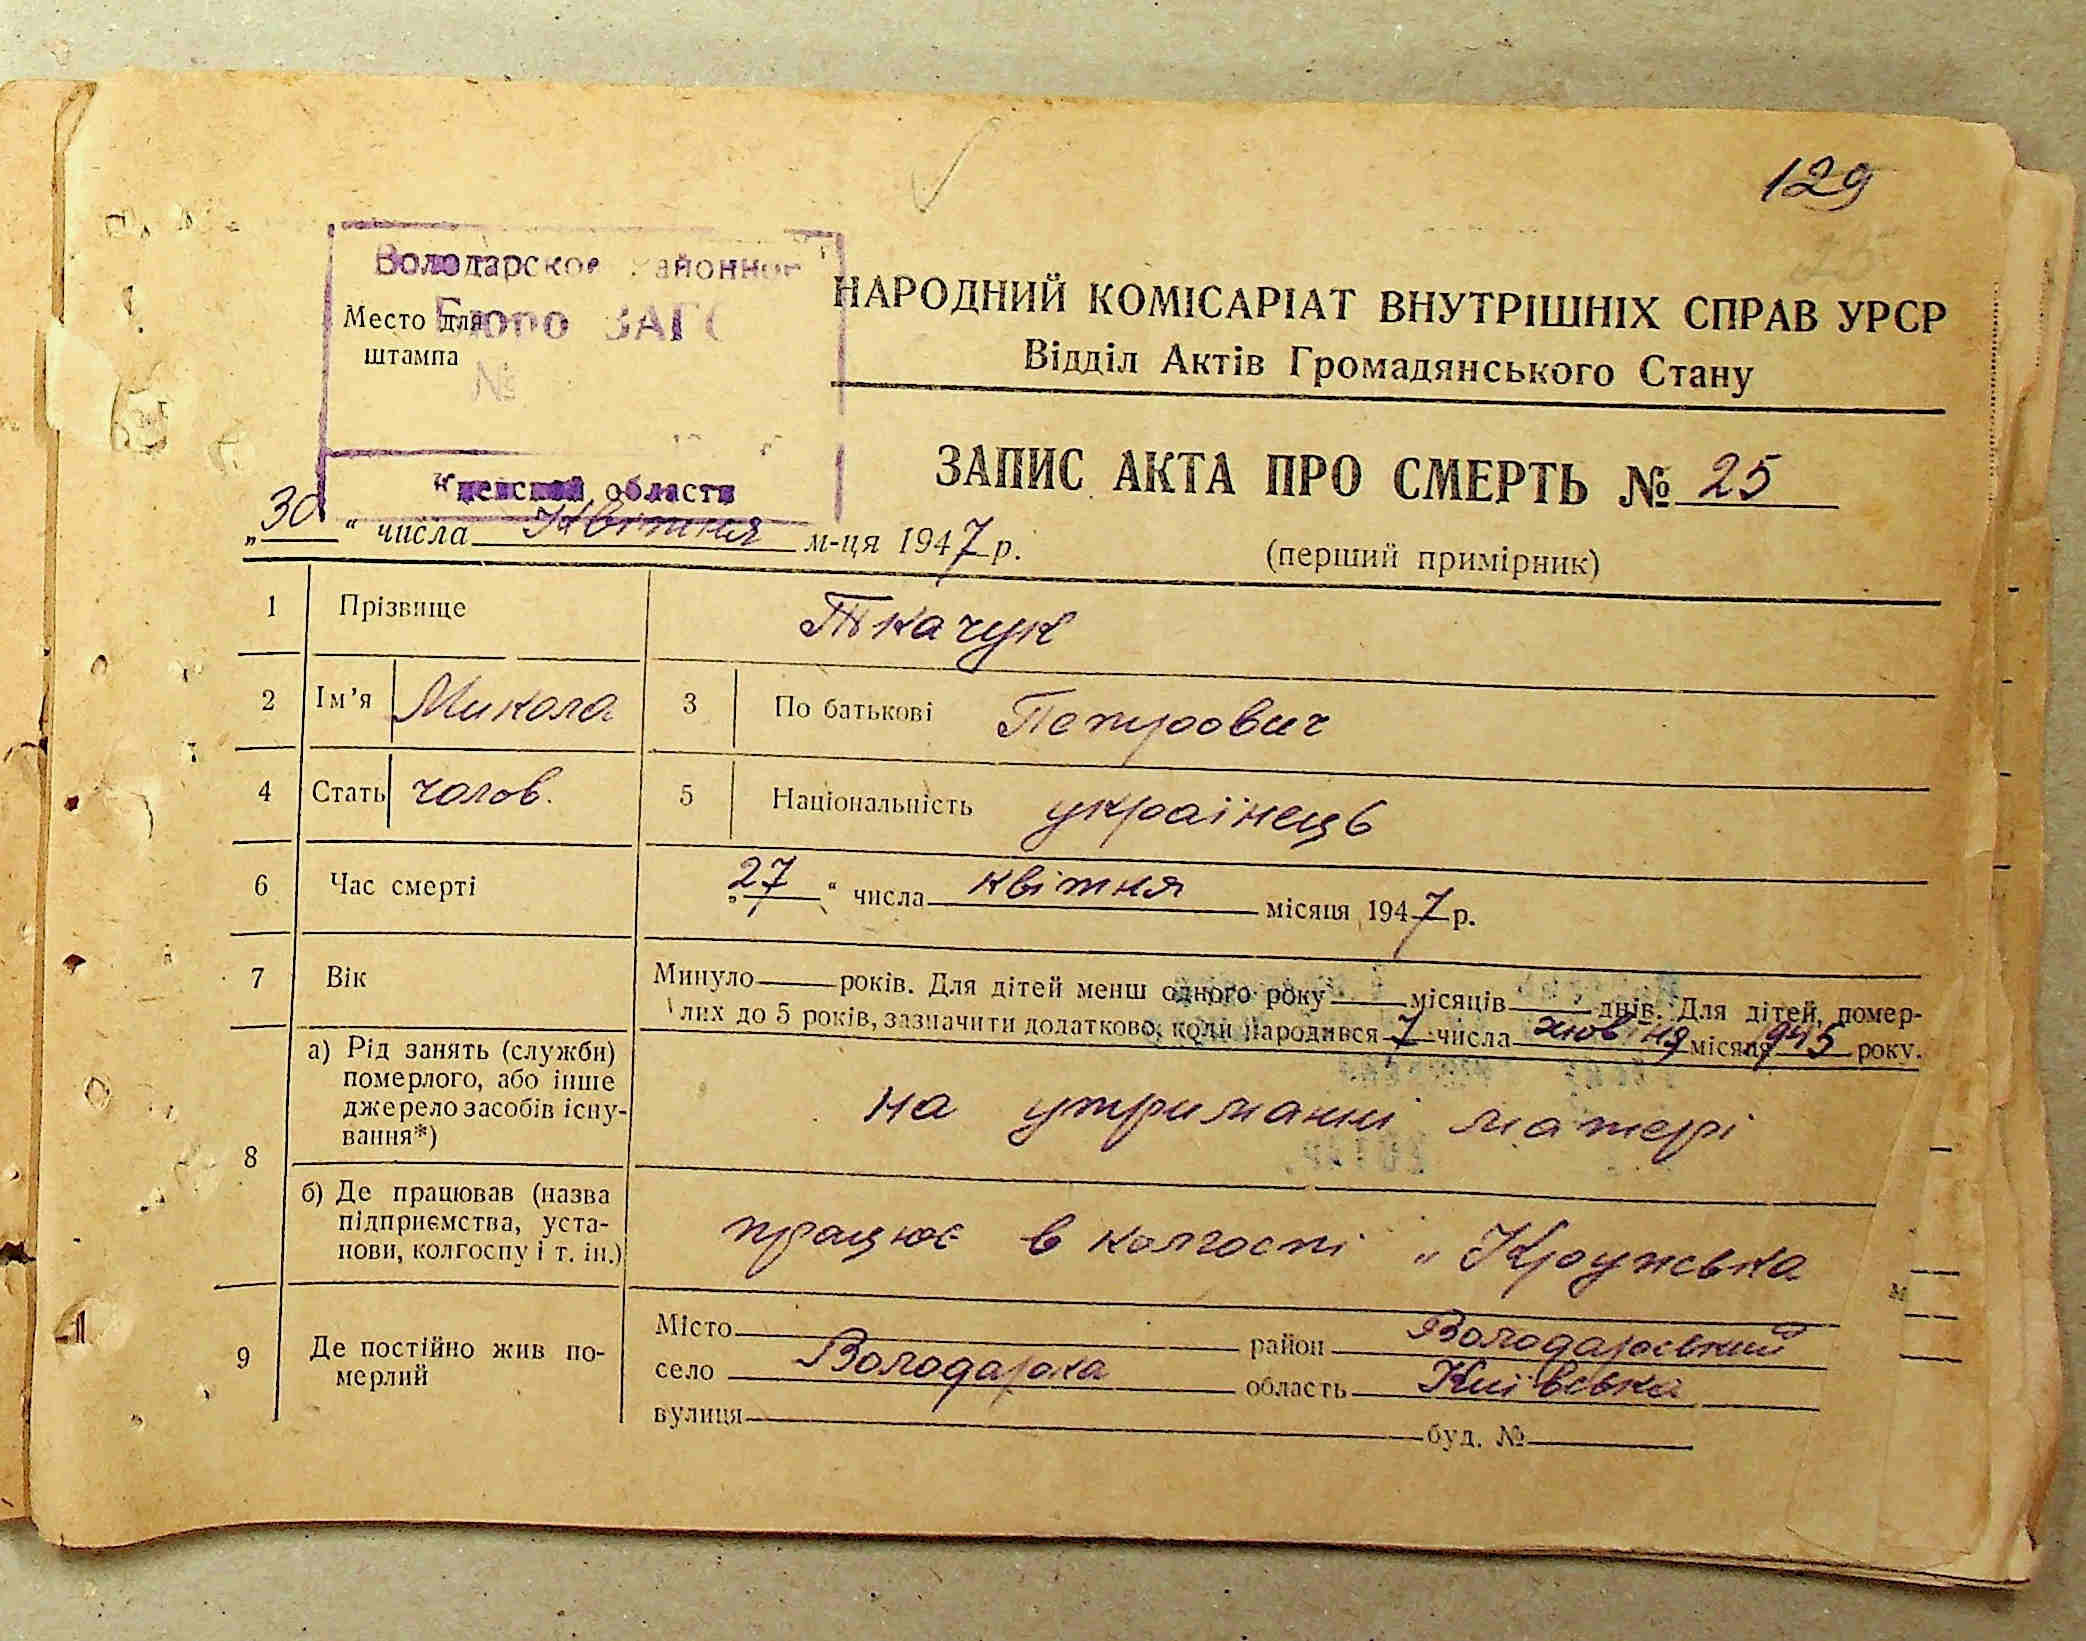 129
25
Володарское Районное
Бюро ЗАГС
Место для
штампа
№
Киевской области
НАРОДНИЙ КОМІСАРІАТ ВНУТРІШНІХ СПРАВ УРСР
Відділ Актів Громадянського Стану
ЗАПИС АКТА ПРО СМЕРТЬ № 25
„30“ числа Квітня м-ця 1947 р.
(перший примірник)
1 Прізвище Ткачук
2 Ім’я Микола 3 По батькові Петрович
4 Стать чолов. 5 Національність українець
6 Час смерті „27“ числа квітня місяця 1947 р.
7 Вік Минуло років. Для дітей менш одного року місяців днів. Для дітей, помер-
лих до 5 років, зазначити додатково, коли народився 7 числа жовтня місяця 945 року.
8 а) Рід занять (служби)
померлого, або інше
джерело засобів існу-
вання*)
на утриманні матері
б) Де працював (назва
підприємства, уста-
нови, колгоспу і т. ін.)
працює в колгоспі „
9 Де постійно жив по-
мерлий
Місто район Володарський
село Володарка область Київська
вулиця буд. №